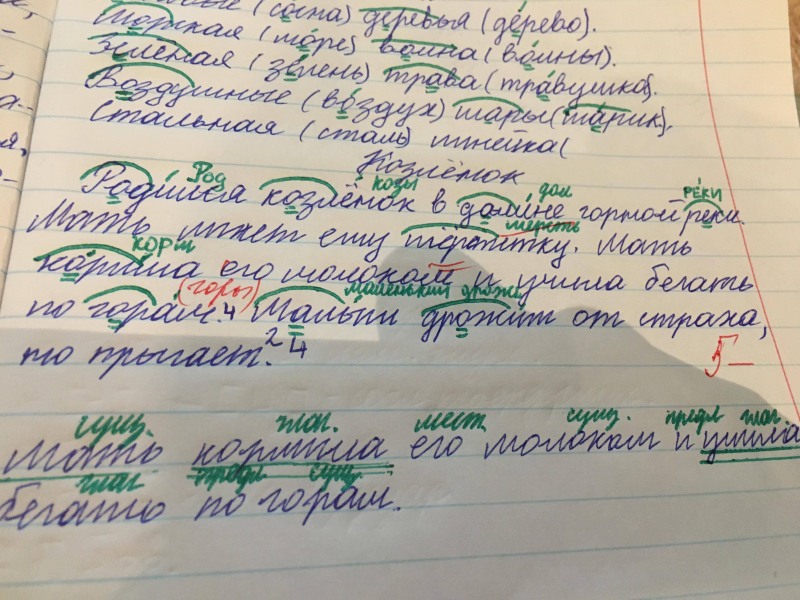 (сосна) деревья (дерево).
Морская (море) война (войны).
Зелёная (зелень) трава (травушка).
Воздушные (воздух) шары (шарик).
Стальная (сталь) линейка (
Козлёнок
Род козы дол РЕКИ
Родился козлёнок в долине горной реки.
шерсть
Мать лижет ему шёрстку. Мать
корм
кормила его молоком и учила бегать
(горы) маленький дрожь
по горам. 4 Малыш дрожит от страха,
но прыгает. 2 4
5-
сущ. глаг. мест. сущ. предл глаг.
Мать кормила его молоком и учила
глаг предл сущ.
бегать по горам.